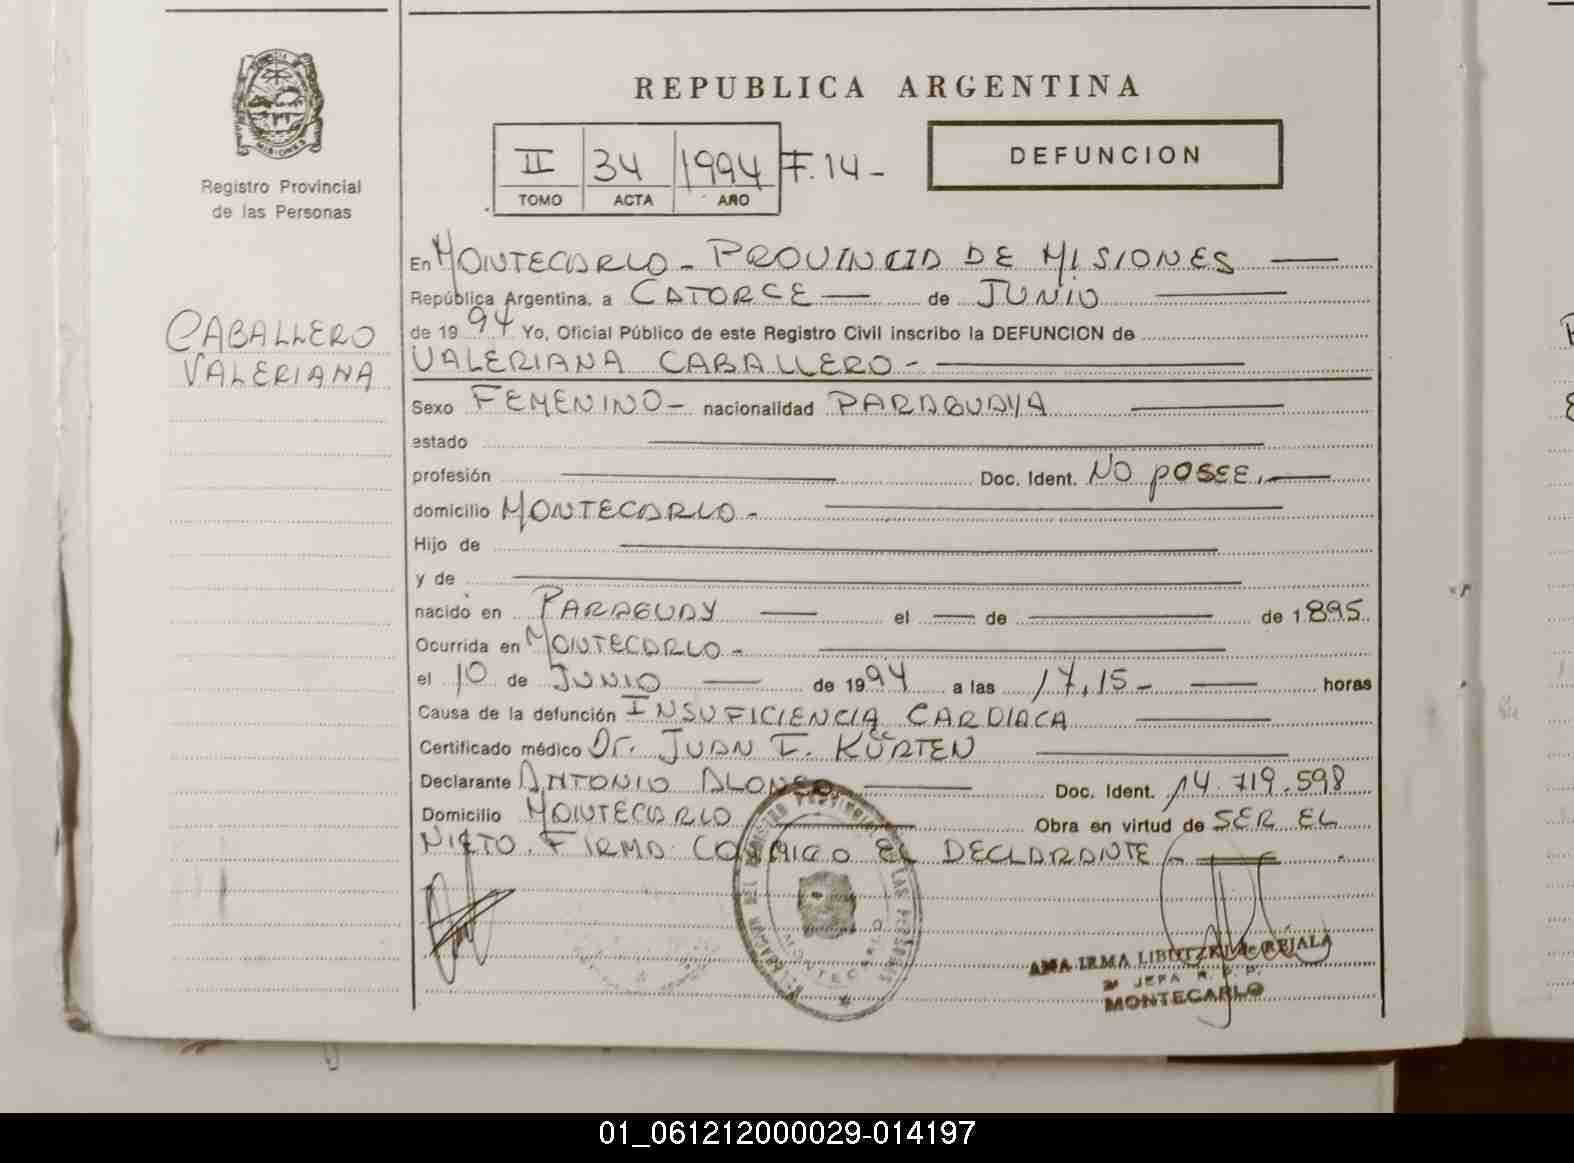 REPUBLICA ARGENTINA
MISIONES
Registro Provincial
de las Personas
II 34 1994 F. 14 -
TOMO ACTA AÑO
DEFUNCION
CABALLERO
VALERIANA
En MONTECARLO - PROVINCIA DE MISIONES
República Argentina, a CATORCE de JUNIO
de 1994 Yo, Oficial Público de este Registro Civil inscribo la DEFUNCION de
VALERIANA CABALLERO -
Sexo FEMENINO - nacionalidad PARAGUAYA
estado
profesión Doc. Ident. NO POSEE.
domicilio MONTECARLO -
Hijo de
y de
nacido en PARAGUAY el de de 1895
Ocurrida en MONTECARLO -
el 10 de JUNIO de 1994 a las 17,15 - horas
Causa de la defunción INSUFICIENCIA CARDIACA
Certificado médico Dr. JUAN I. KÜRTEN
Declarante ANTONIO ALONSO Doc. Ident. 14.719.598
Domicilio MONTECARLO Obra en virtud de SER EL
NIETO. FIRMA CONMIGO EL DECLARANTE -
MONTECARLO
ANA IRMA LIBUTZKI de REJALA
JEFA R. P. P.
MONTECARLO
01_061212000029-014197